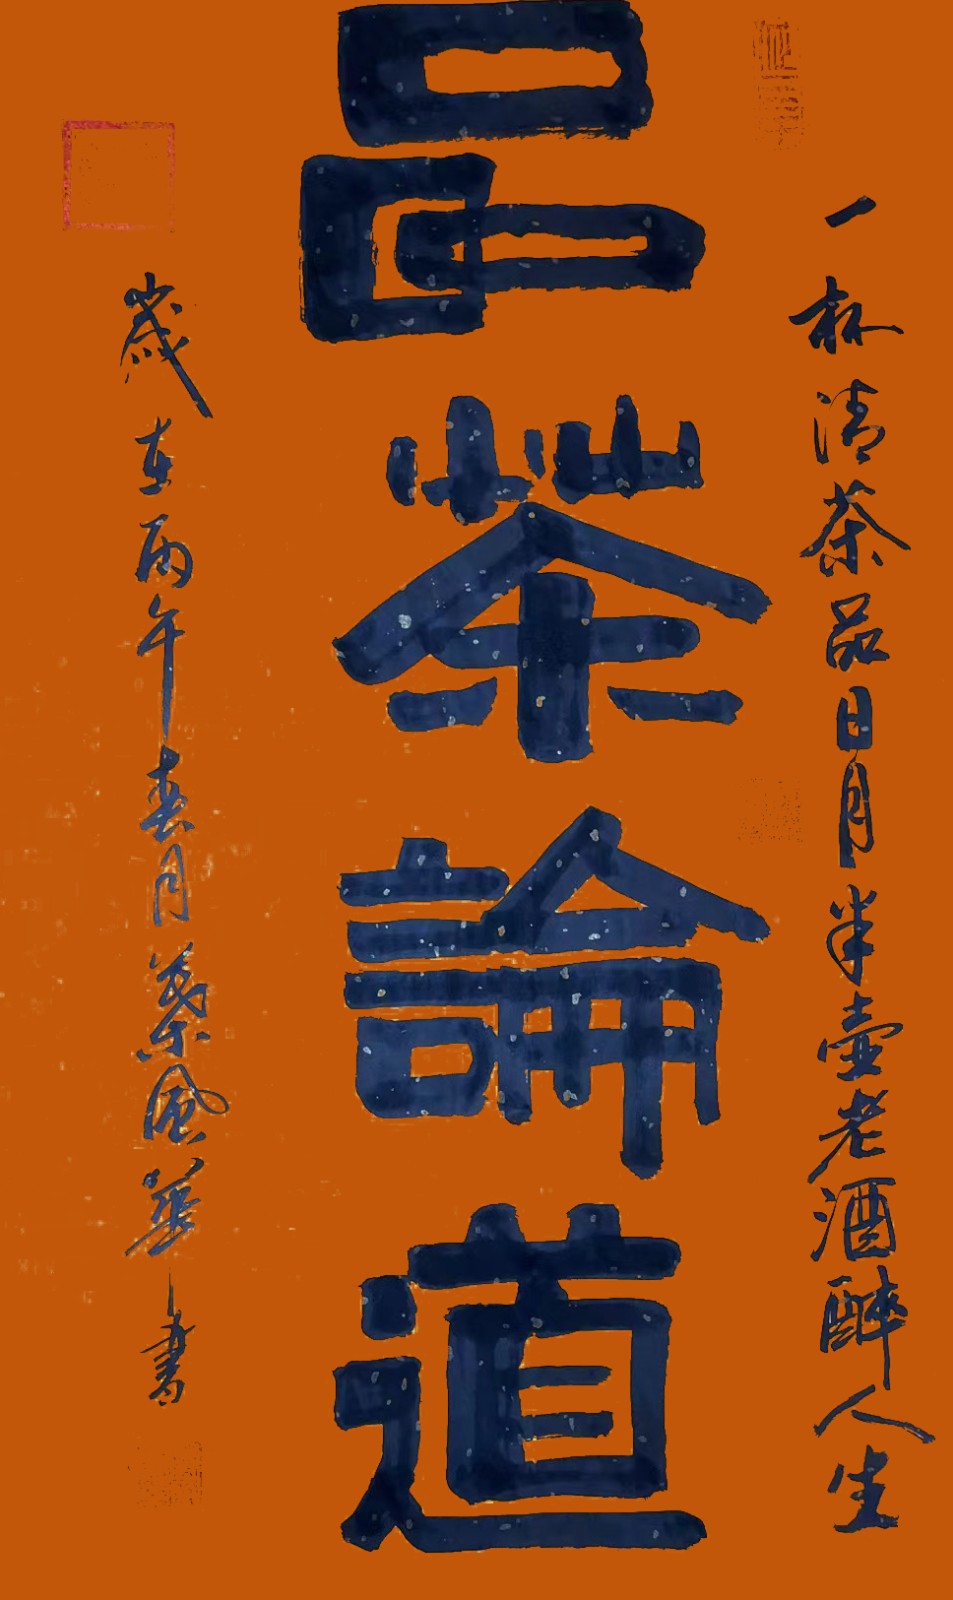 一杯清茶品日月半壶老酒醉人生
品茶論道
歲在丙午春月蔡風華書